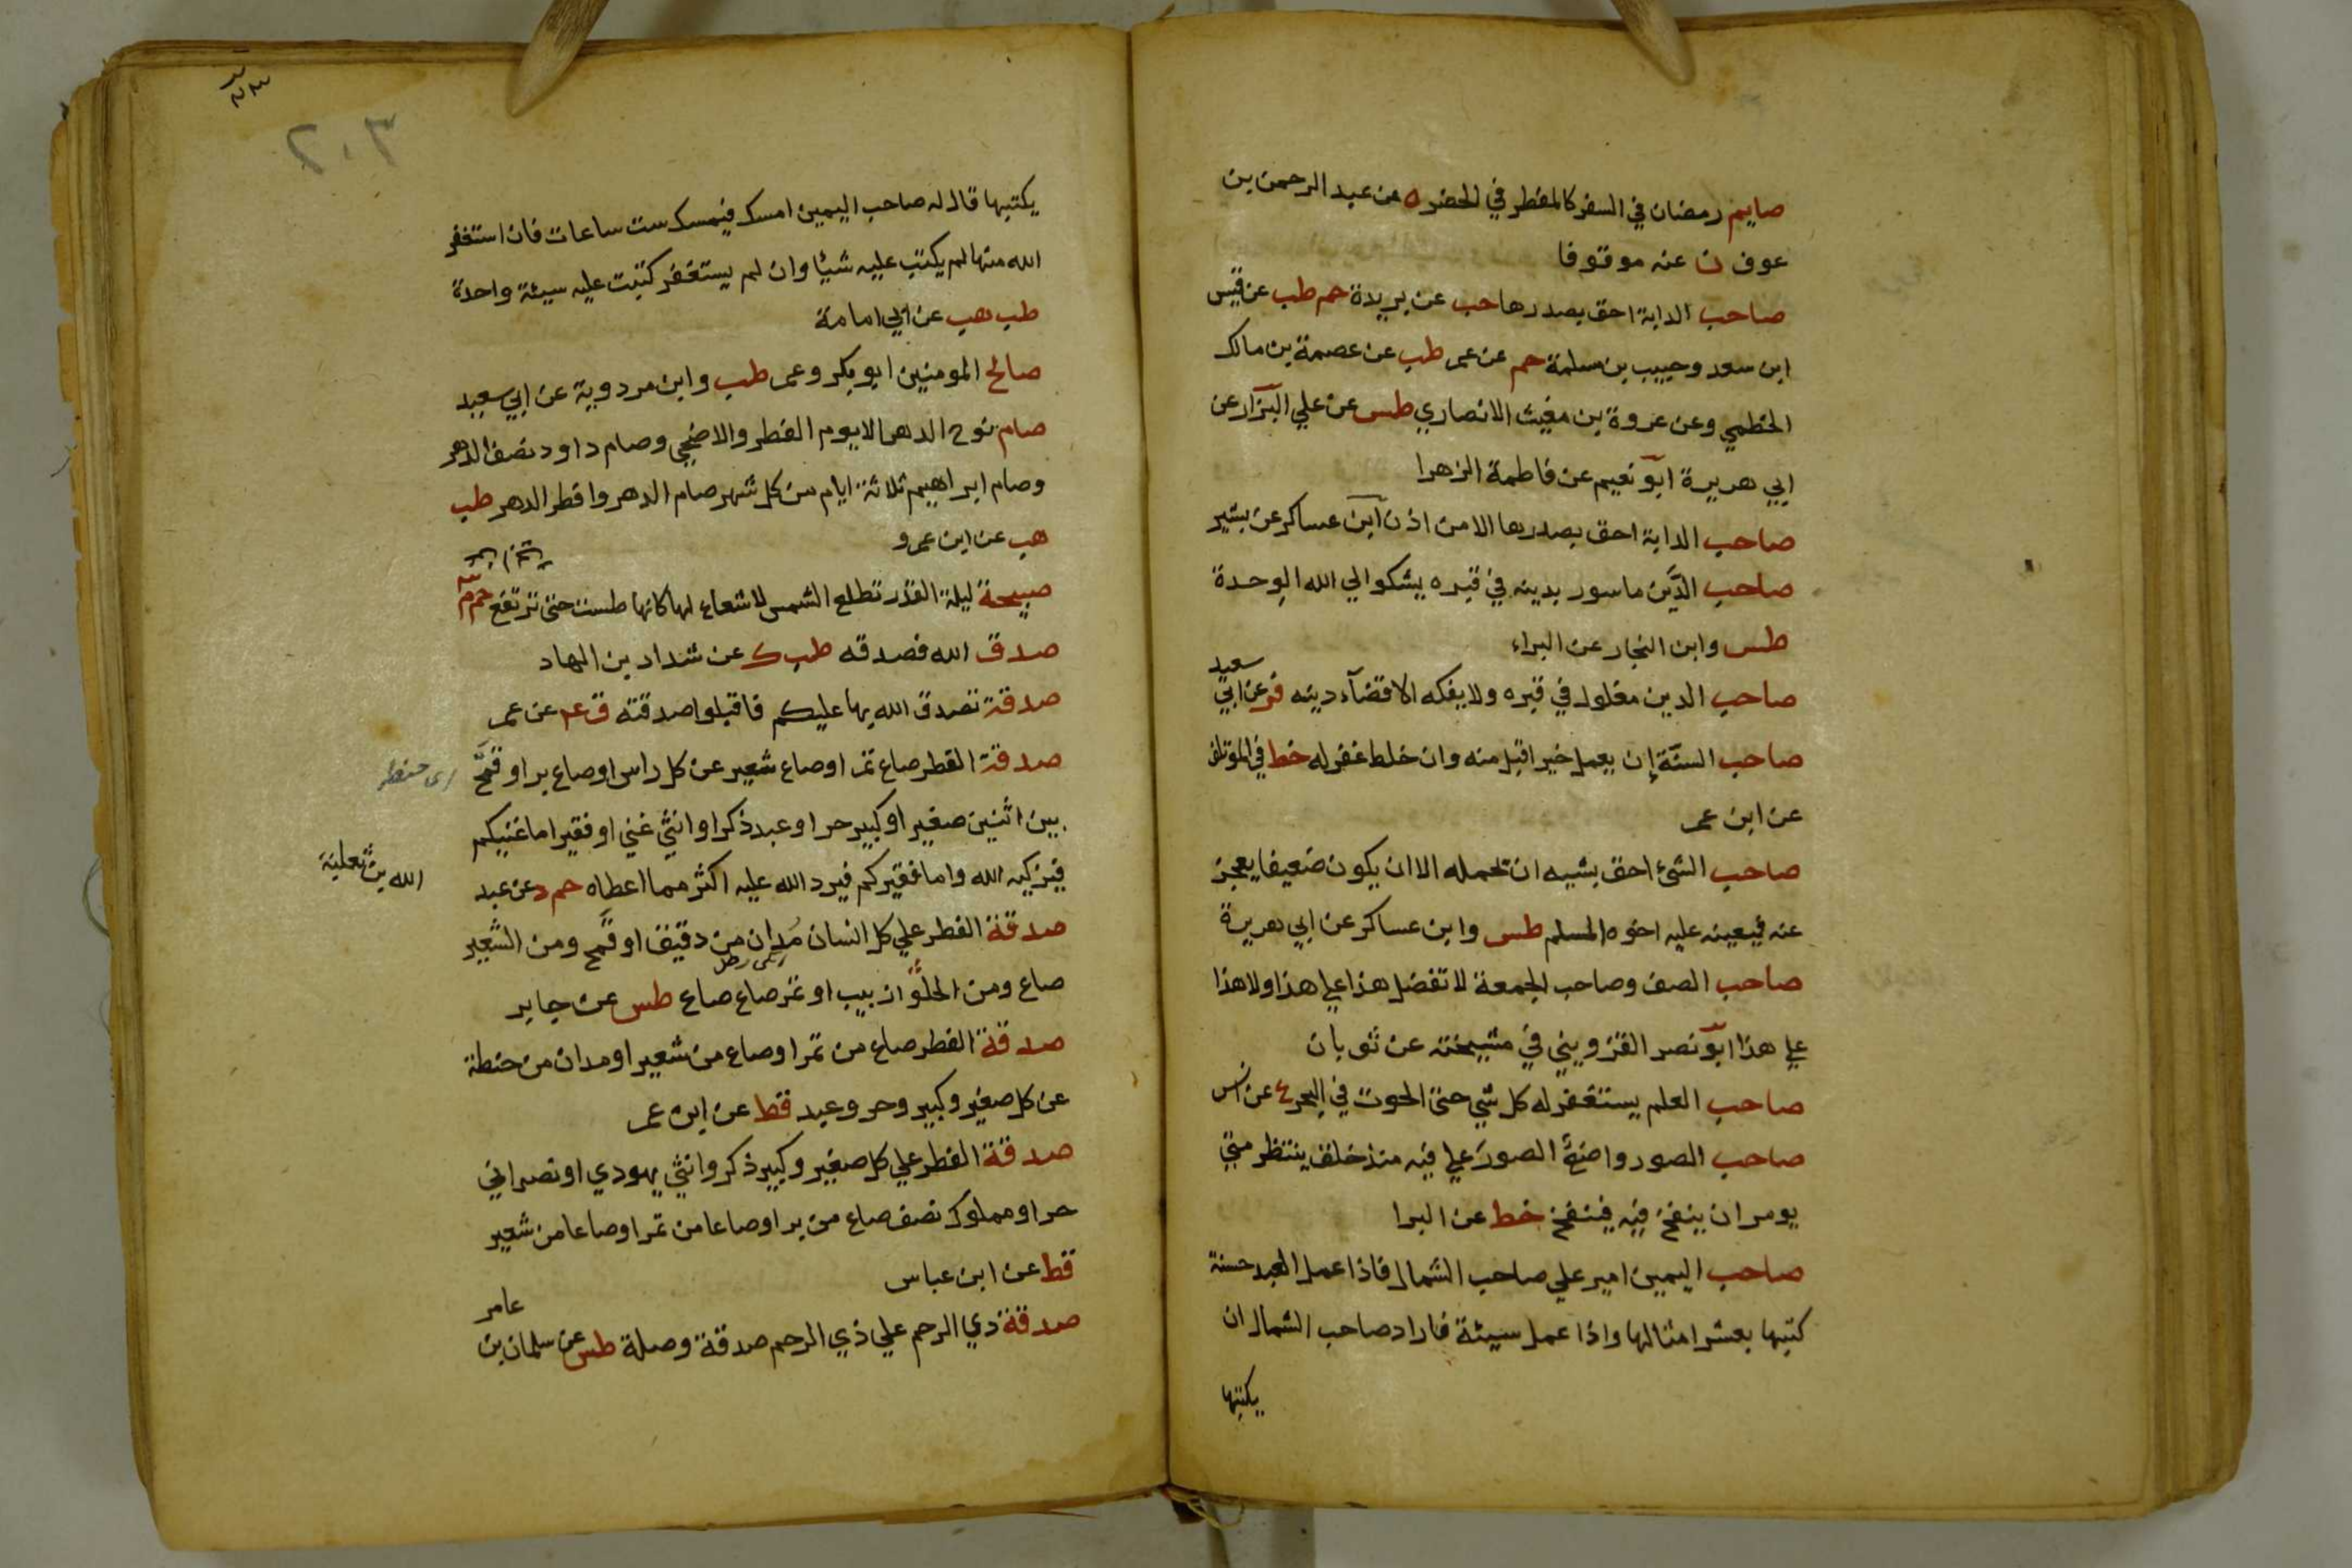 صايم رمضان في السفر كالمفطر في الحضر ه عن عبد الرحمن بن
عوف ن عنه موقوفا
صاحب الدابة احق بصدرها حب عن بريدة حم طب عن قيس
ابن سعد وحبيب بن سلمة حم عن عمر طب عن عصمة بن مالك
الخطمي وعن عروة بن مغيث الانصاري طس عن علي البزار عن
ابي هريرة ابو نعيم عن فاطمة الزهرا
صاحب الدابة احق بصدرها الا من اذن ابن عساكر عن بشير
صاحب الدين ماسور بدينه في قبره يشكوا الي الله الوحدة
طس وابن النجار عن البراء
صاحب الدين مغلول في قبره ولا يفكه الا قضآء دينه فر عن ابي سعيد
صاحب السنة إن يعمل خيرا قبل منه وان خلط غفر له خط في الموتلف
عن ابن عمر
صاحب الشيء احق بشيه ان تحمله الا ان يكون ضعيفا يعجز
عنه فيعينه عليه اخوه المسلم طس وابن عساكر عن ابي هريرة
صاحب الصف وصاحب الجمعة لا تفضل هذا علي هذا ولا هذا
علي هذا ابو نصر القزويني في مشيخته عن ثوبان
صاحب العلم يستغفر له كل شي حتى الحوت في البحر ع عن انس
صاحب الصور واضع الصور علي فيه منذ خلق ينتظر متي
يومر ان ينفخ فيه فينفخ خط عن البرا
صاحب اليمين امير علي صاحب الشمال فاذا عمل العبد حسنة
كتبها بعشر امثالها واذا عمل سيئة فاراد صاحب الشمال ان
يكتبها
٢٠٣
يكتبها قال له صاحب اليمين امسك فيمسك ست ساعات فان استغفر
الله منها لم يكتب عليه شيأ وان لم يستغفر كتبت عليه سيئة واحدة
طب هب عن ابي امامة
صالح المومنين ابو بكر وعمر طب وابن مردوية عن ابي سعيد
صام نوح الدهر الا يوم الفطر والاضحي وصام داود نصف الدهر
وصام ابراهيم ثلاثة ايام من كل شهر صام الدهر وافطر الدهر طب
هب عن ابن عمرو
صبيحة ليلة القدر تطلع الشمس لا شعاع لها كانها طست حتى ترتفع حم م
صدق الله فصدقه طب ك عن شداد بن الهاد
صدقة تصدق الله بها عليكم فاقبلوا صدقته ق عم عن عمر
صدقة الفطر صاع تمر او صاع شعير عن كل راس او صاع بر او قمح
اى حنطه
بين اثنين صغير او كبير حر او عبد ذكر او انثي غني او فقير اما غنيكم
فيزكيه الله واما فقيركم فيرد الله عليه اكثر مما اعطاه حم د عن عبد
الله بن ثعلبة
صدقة الفطر علي كل انسان مدان من دقيق او قمح ومن الشعير
صاع ومن الحلوا زبيب او تمر صاع صاع طس عن جابر
صدقة الفطر صاع من تمر او صاع من شعير او مدان من حنطة
عن كل صغير وكبير وحر وعبد قط عن ابن عمر
صدقة الفطر علي كل صغير وكبير ذكر وانثي يهودي او نصراني
حر او مملوك نصف صاع من بر او صاعا من تمر او صاعا من شعير
قط عن ابن عباس
صدقة ذي الرحم علي ذي الرحم صدقة وصلة طس عن سلمان بن عامر